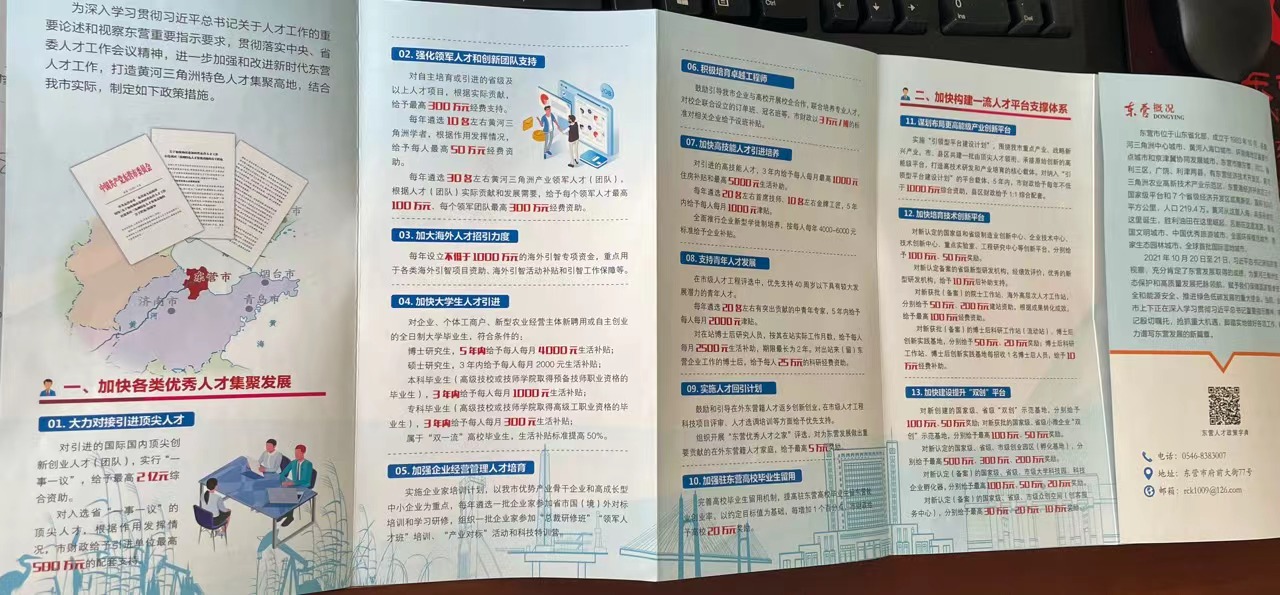 为深入学习贯彻习近平总书记关于人才工作的重
要论述和视察东营重要指示要求，贯彻落实中央、省
委人才工作会议精神，进一步加强和改进新时代东营
人才工作，打造黄河三角洲特色人才集聚高地，结合
我市实际，制定如下政策措施。
东营市
烟台市
济南市
青岛市
黄
河
黄
海
一、加快各类优秀人才集聚发展
01. 大力对接引进顶尖人才
对引进的国际国内顶尖创
新创业人才（团队），实行“一
事一议”，给予最高2亿元综
合资助。
对入选省“一事一议”的
顶尖人才，根据作用发挥情
况，市财政给予引进单位最高
500万元的配套支持。
02. 强化领军人才和创新团队支持
对自主培育或引进的省级及
以上人才项目，根据实际贡献，
给予最高300万元经费支持。
每年遴选10名左右黄河三
角洲学者，根据作用发挥情况，
给予每人最高50万元经费资
助。
每年遴选30名左右黄河三角洲产业领军人才（团队），
根据人才（团队）实际贡献和发展需要，给予每个领军人才最高
100万元、每个领军团队最高300万元经费资助。
03. 加大海外人才招引力度
每年设立不低于1000万元的海外引智专项资金，重点用
于各类海外引智项目资助、海外引智活动补贴和引智工作保障等。
04. 加快大学生人才引进
对企业、个体工商户、新型农业经营主体新聘用或自主创业
的全日制大学毕业生，符合条件的：
博士研究生，5年内给予每人每月4000元生活补贴；
硕士研究生，3年内给予每人每月2000元生活补贴；
本科毕业生（高级技校或技师学院取得预备技师职业资格的
毕业生），3年内给予每人每月1000元生活补贴；
专科毕业生（高级技校或技师学院取得高级工职业资格的毕
业生），3年内给予每人每月300元生活补贴；
属于“双一流”高校毕业生，生活补贴标准提高50%。
05. 加强企业经营管理人才培育
实施企业家培训计划，以我市优势产业骨干企业和高成长型
中小企业为重点，每年遴选一批企业家参加省市国（境）外对标
培训和学习研修，组织一批企业家参加“总裁研修班”“领军人
才班”培训、“产业对标”活动和科技特训营。
06. 积极培育卓越工程师
鼓励引导我市企业与高校开展校企合作，联合培养专业人才，
对校企联合设立的订单班、冠名班等，市财政以3万元/班的标
准对相关企业给予设班补贴。
07. 加快高技能人才引进培养
对引进的高技能人才，3年内给予每人每月最高1000元
住房补贴和最高5000元生活补贴。
每年遴选20名左右首席技师、10名左右金牌工匠，5年
内给予每人每月1000元津贴。
全面推行企业新型学徒制培养，按每人每年4000-6000元
标准给予企业补贴。
08. 支持青年人才发展
在市级人才工程评选中，优先支持40周岁以下具有较大发
展潜力的青年人才。
每年遴选20名左右有突出贡献的中青年专家，5年内给予
每人每月2000元津贴。
对在站博士后研究人员，按其在站实际工作月数，给予每人
每月2500元生活补助，期限最长为2年。对出站来（留）东
营企业工作的博士后，给予每人25万元的科研经费资助。
09. 实施人才回引计划
鼓励和引导在外东营籍人才返乡创新创业，在市级人才工程
科技项目评审、人才选调培训等方面给予优先支持。
组织开展“东营优秀人才之家”评选，对为东营发展做出重
要贡献的在外东营籍人才家庭，给予最高5万元奖励。
10. 加强驻东营高校毕业生留用
完善高校毕业生留用机制，提高驻东营高校毕业生留东营就
业创业率，以约定目标值为基础，每增加1个百分点，市财政给
予高校20万元奖励。
二、加快构建一流人才平台支撑体系
11. 谋划布局更高能级产业创新平台
实施“引领型平台建设计划”，围绕我市重点产业、战略新
兴产业，市、县区共建一批由顶尖人才领衔、承接原始创新的高
能级平台，打造高技术研发和产业培育的核心载体。对纳入“引
领型平台建设计划”的平台载体，5年内，市财政给予每年不低
于1000万元综合资助，县区财政给予1:1综合配套。
12. 加快培育技术创新平台
对新认定的国家级和省级制造业创新中心、企业技术中心、
技术创新中心、重点实验室、工程研究中心等创新平台，分别给
予100万元、50万元奖励。
对新认定备案的省级新型研发机构，经绩效评价，优秀的新
型研发机构，给予10万元后补助支持。
对新获批（备案）的院士工作站、海外高层次人才工作站，
分别给予50万元、200万元建站资助，根据成果转化成效，
给予最高100万元经费资助。
对新获批（备案）的博士后科研工作站（流动站）、博士后
创新实践基地，分别给予50万元、20万元奖励；博士后科研
工作站、博士后创新实践基地每招收1名博士后人员，给予10
万元经费补助。
13. 加快建设提升“双创”平台
对新创建的国家级、省级“双创”示范基地，分别给予
100万元、50万元奖励；对新获批的国家级、省级小微企业“双
创”示范基地，分别给予最高100万元、50万元奖励。
对新认定的国家级、省级、市级创业园区（孵化基地），分
别给予最高500万元、300万元、200万元奖励。
对新认定（备案）的国家级、省级、市级大学科技园、科技
企业孵化器，分别给予最高100万元、50万元、20万元奖励。
对新认定（备案）的国家级、省级、市级众创空间（创客服
务中心），分别给予最高30万元、20万元、10万元奖励。
东营概况
DONGYING
2021年10月20日至21日，习近平总书记
东营人才政策字典
电话：0546-8383007
地址：东营市府前大街77号
邮箱：rck1009@126.com